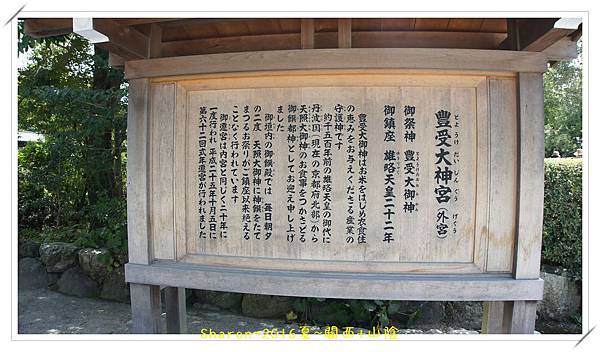 豊受大神宮（外宮）
とようけだいじんぐう　げくう
御祭神　豊受大御神
御鎮座　雄略天皇二十二年
豊受大御神はお米をはじめ衣食住
の恵みをお与えくださる産業の
守護神です
約千五百年前の雄略天皇の御代に
丹波国（現在の京都府北部）から
天照大御神のお食事をつかさどる
御饌都神としてお迎え申し上げ
ました
御垣内の御饌殿では　毎日朝夕
の二度　天照大御神に神饌をたて
まつるお祭りがご鎮座以来絶える
ことなく行われています
御遷宮は内宮と同じく二十年に
一度行われ　平成二十五年十月五日に
第六十二回式年遷宮が行われました
Sharon~2016夏~關西+山陰